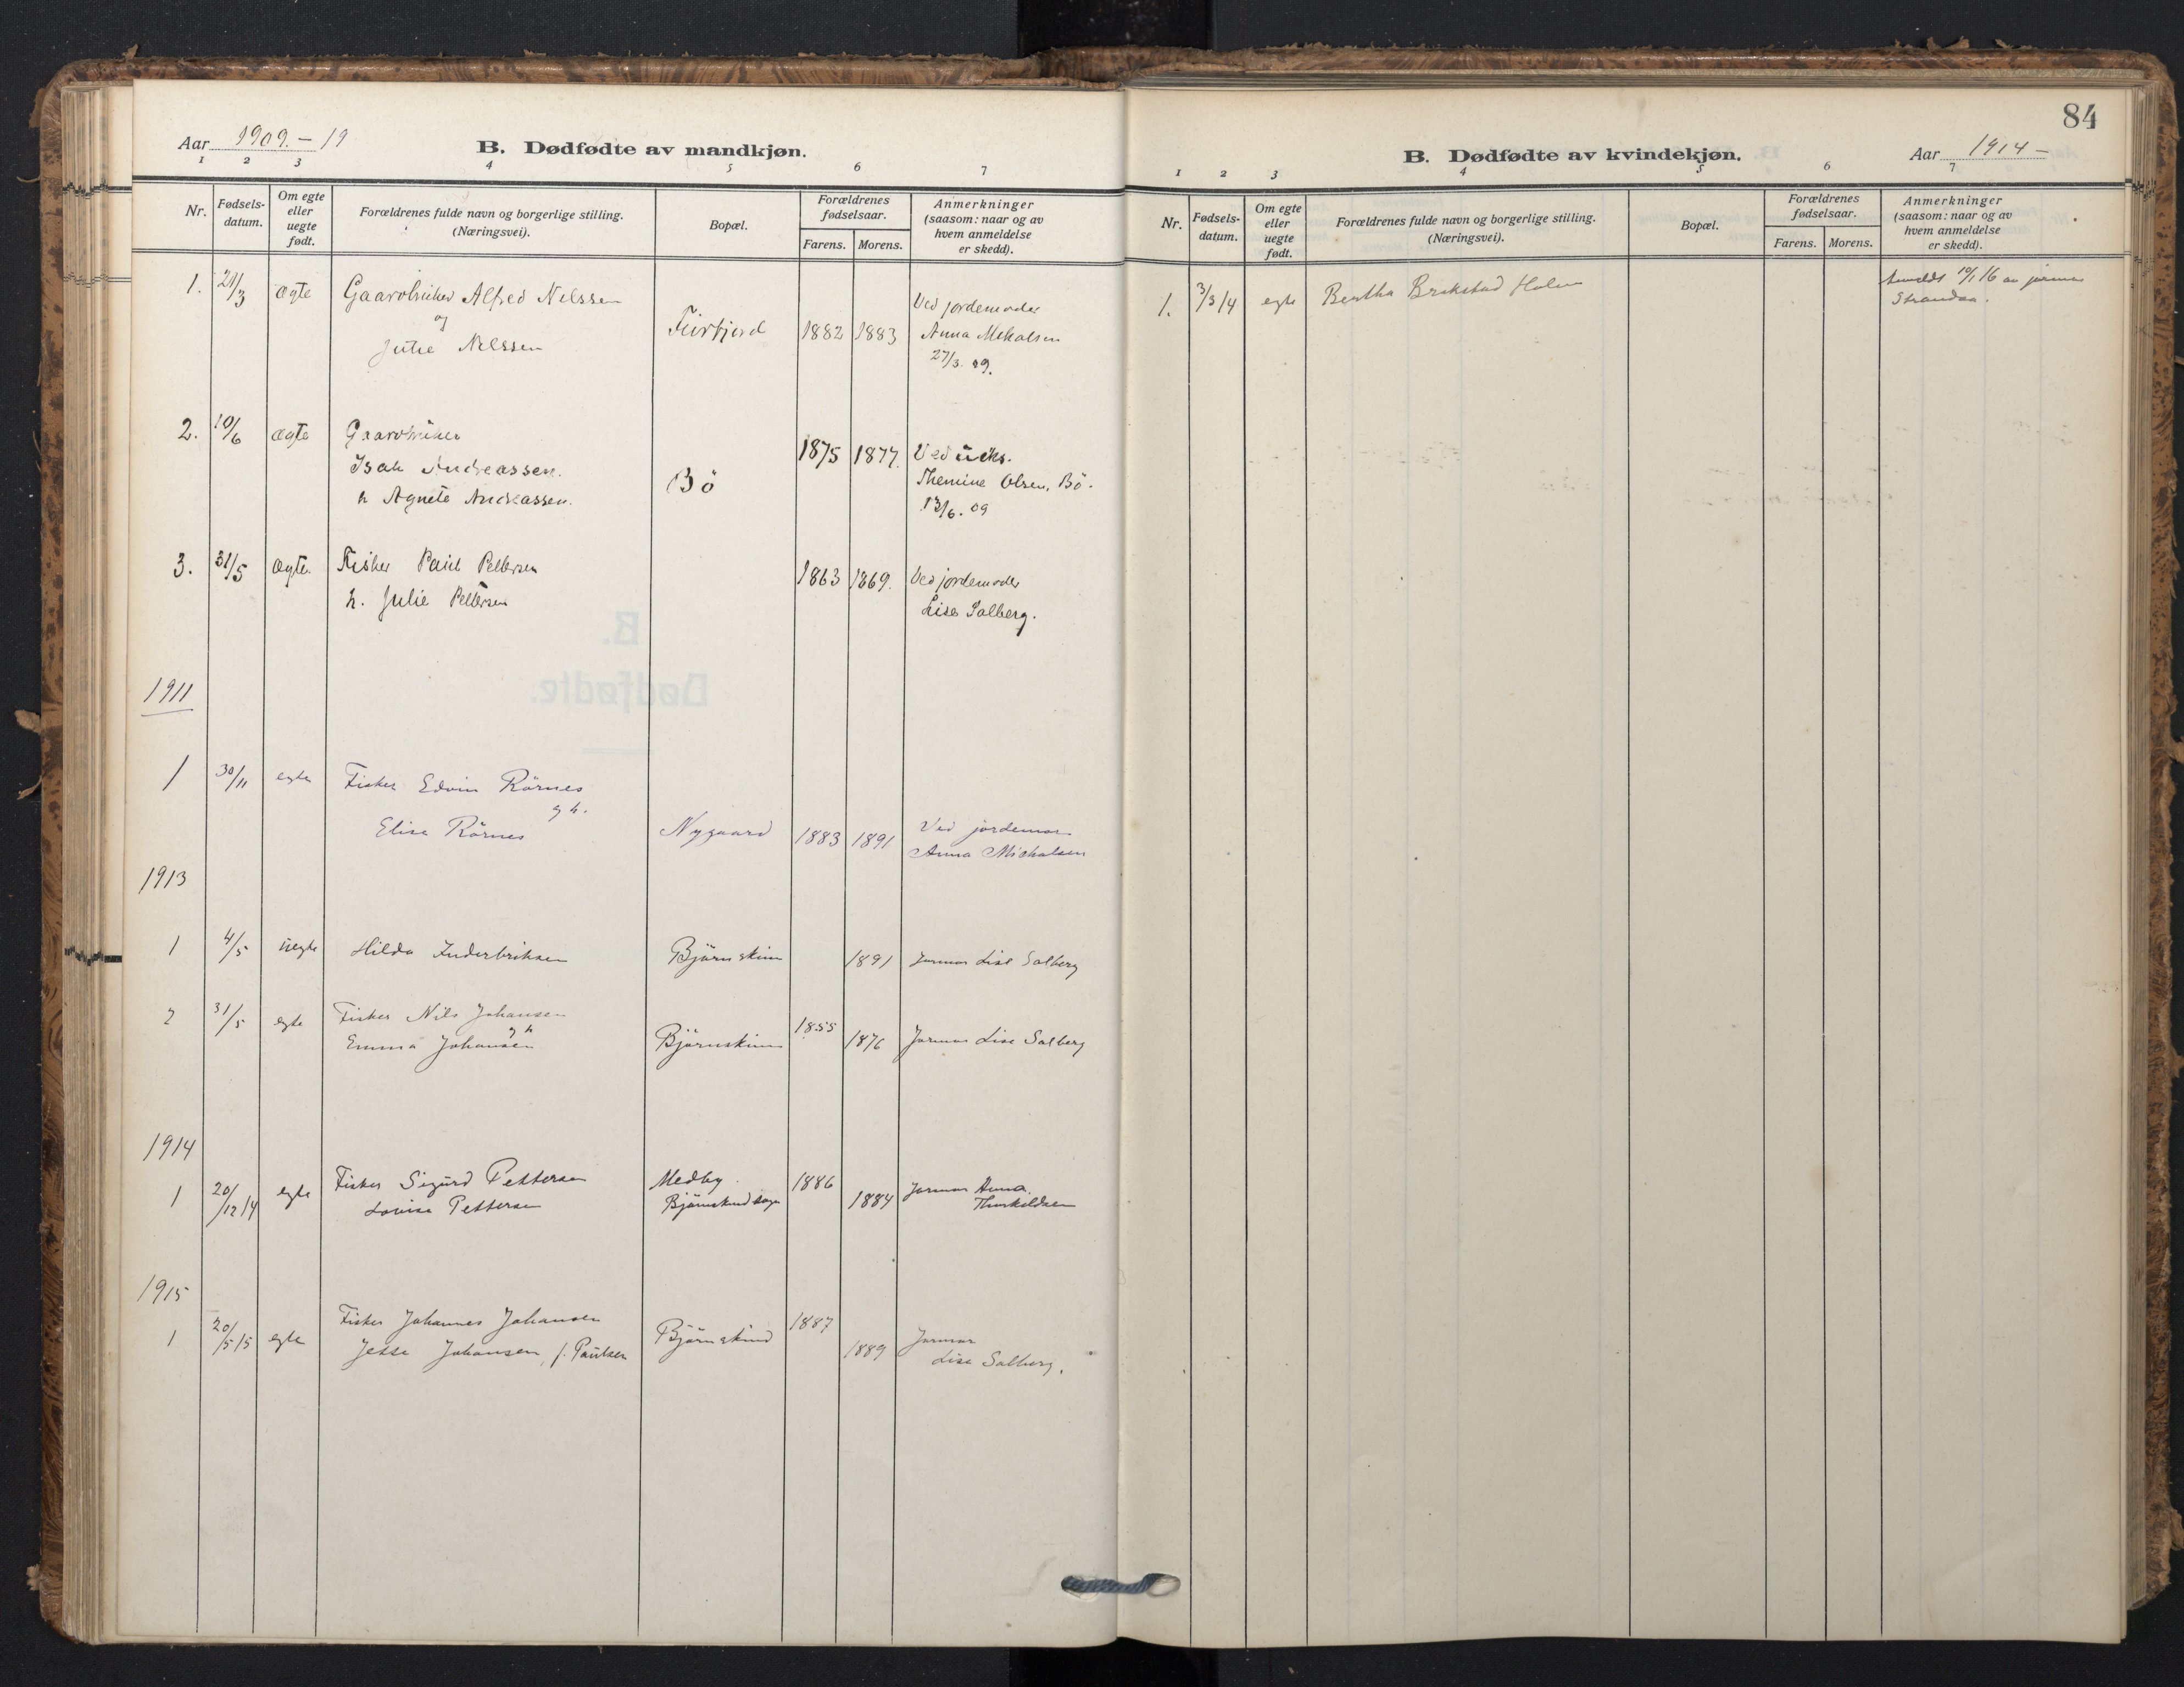 84
Aar 1909.-19
B. Dødfødte av mandkjøn.
1 2 3 4 5 6 7
Nr.
Fødsels-
datum.
Om egte
eller
uegte
født.
Forældrenes fulde navn og borgerlige stilling.
(Næringsvei).
Bopæl.
Forældrenes
fødselsaar.
Farens. Morens.
Anmerkninger
(saasom: naar og av
hvem anmeldelse
er skedd).
1. 21/3 ægte Gaardbruker Alfred Nilssen
og
Julie Nilssen
1882 1883
Ved jordemoder
Anna Mikalsen
27/3. 09.
2. 10/6 ægte Gaardbruker
Isak Andreassen.
h Agnete Andreassen.
Bö
1875 1877.
Ved
Themine Olsen, Bö.
13/6. 09
3. 31/5 ægte. Fisker Paul Pettersen
h. Julie Pettersen
1863 1869.
Ved jordemoder
Lise Solberg.
1911
1 30/11 egte Fisker Edvin Rörnes
g h.
Elise Rörnes
Nygaard 1883 1891
Ved jordemor
Anna Mickalsen
1913
1 4/5 uegte Hilda
Björnskinn 1891 Jormor Lise Solberg
2 31/5 egte Fisker Nils Johansen
g h
Emma Johansen
Björnskinn 1855 1876 Jormor Lise Solberg
1914
1 20/12 14 egte Fisker Sigurd Pettersen
Lovise Pettersen
Medby.
Björnskind sogn
1886 1884
Jormor Anna
Thorkildsen
1915
1 20/5 15 egte Fisker Johannes Johansen
Johansen, f. Paulsen
Björnskind 1887 1889
Jormor
Lise Solberg.
B. Dødfødte av kvindekjøn.
Aar 1914-
1 2 3 4 5 6 7
Nr.
Fødsels-
datum.
Om egte
eller
uegte
født.
Forældrenes fulde navn og borgerlige stilling.
(Næringsvei).
Bopæl.
Forældrenes
fødselsaar.
Farens. Morens.
Anmerkninger
(saasom: naar og av
hvem anmeldelse
er skedd).
1. 3/3 14 egte Bertha Brekstad Holm
Anmeldt 10/1 16 av jormor
Strandaa.